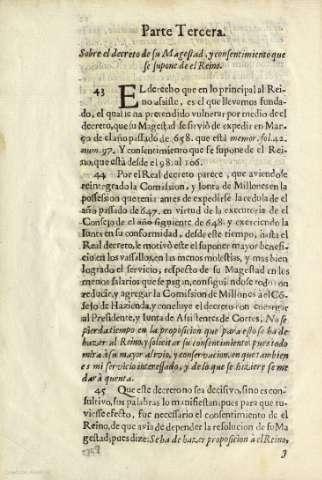 Parte Tercera.
Sobre el decreto de su Magestad, y consentimiento que
se supone de el Reino.
43 EL derecho que en lo principal al Rei-
no asiste, es el que llevamos funda-
do, el qual se ha pretendido vulnerar por medio de el
decreto, que su Magestad se sirviò de expedir en Mar-
ço de el año passado de 658. que està memor. fol. 42.
num. 97. Y consentimiento que se supone de el Rei-
no, que està desde el 98. al 106.
44 Por el Real decreto parece, que aviendose
reintegrado la Comission, y Iunta de Millones en la
possession que tenia antes de expedirse la cedula de el
año passado de 647. en virtud de la executoria de el
Consejo de el año siguiente de 648. y exerciendo la
Iunta en su conformidad, desde este tiempo, hasta el
Real decreto, le motivò este el suponer mayor benefi-
cio en los vassallos, en las menos molestias, y mas bien
logrado el servicio, respecto de su Magestad en los
menos salarios que se pagan, consiguiendose todo con
reducir, y agregar la Comission de Millones à el Cõ-
sejo de Hazienda, y concluye el decreto con encargar
al Presidente, y Iunta de Assistentes de Cortes, No se
pierda tiempo en la proposicion que para esto se ha de
hazer al Reino, y solicitar su consentimiento; pues todo
mira à su mayor alivio, y conservacion, en que tambien
es mi servicio interessado, y de lo que se hiziere se me
darà quenta.
45 Que este decreto no sea decisivo, sino es con-
sultivo, sus palabras lo manifiestan: pues para que tu-
viesse efecto, fue necessario el consentimiento de el
Reino, de que avia de depender la resolucion de su Ma-
gestad; pues dize: Se ha de hazer proposicion à el Reino,